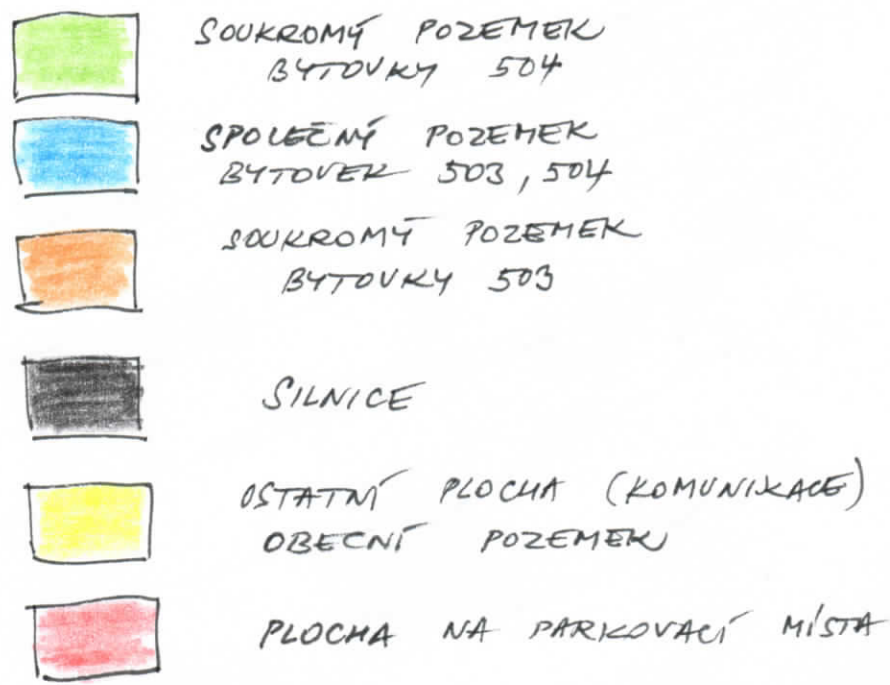 SOUKROMÝ POZEMEK
BYTOVKY 504
SPOLEČNÝ POZEMEK
BYTOVEK 503, 504
SOUKROMÝ POZEMEK
BYTOVKY 503
SILNICE
OSTATNÍ PLOCHA (KOMUNIKACE)
OBECNÍ POZEMEK
PLOCHA NA PARKOVACÍ MÍSTA